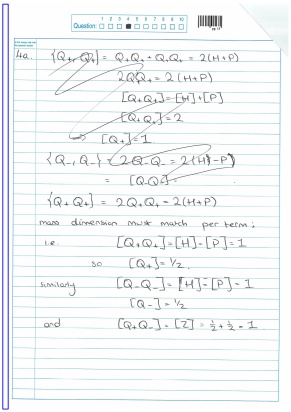 Question: 1 2 3 4 5 6 7 8 9 10
4a. {Q₊, Q₊} = Q₊Q₊ + Q₊Q₊ = 2(H+P)
2QQ₊ = 2(H+P)
[Q₊Q₊] = [H]+[P]
[Q₊Q₊] = 2
⇒ [Q₊] = 1
{Q₋, Q₋} = 2Q₋Q₋ = 2(H-P)
= [Q₋Q₋] =
{Q₊Q₊} = 2Q₊Q₊ = 2(H+P)
mass dimension must match per term;
i.e. [Q₊Q₊] = [H] = [P] = 1
so [Q₊] = 1/2.
similarly [Q₋Q₋] = [H] = [P] = 1
[Q₋] = 1/2
and [Q₊Q₋] = [Z] = 1/2 + 1/2 = 1